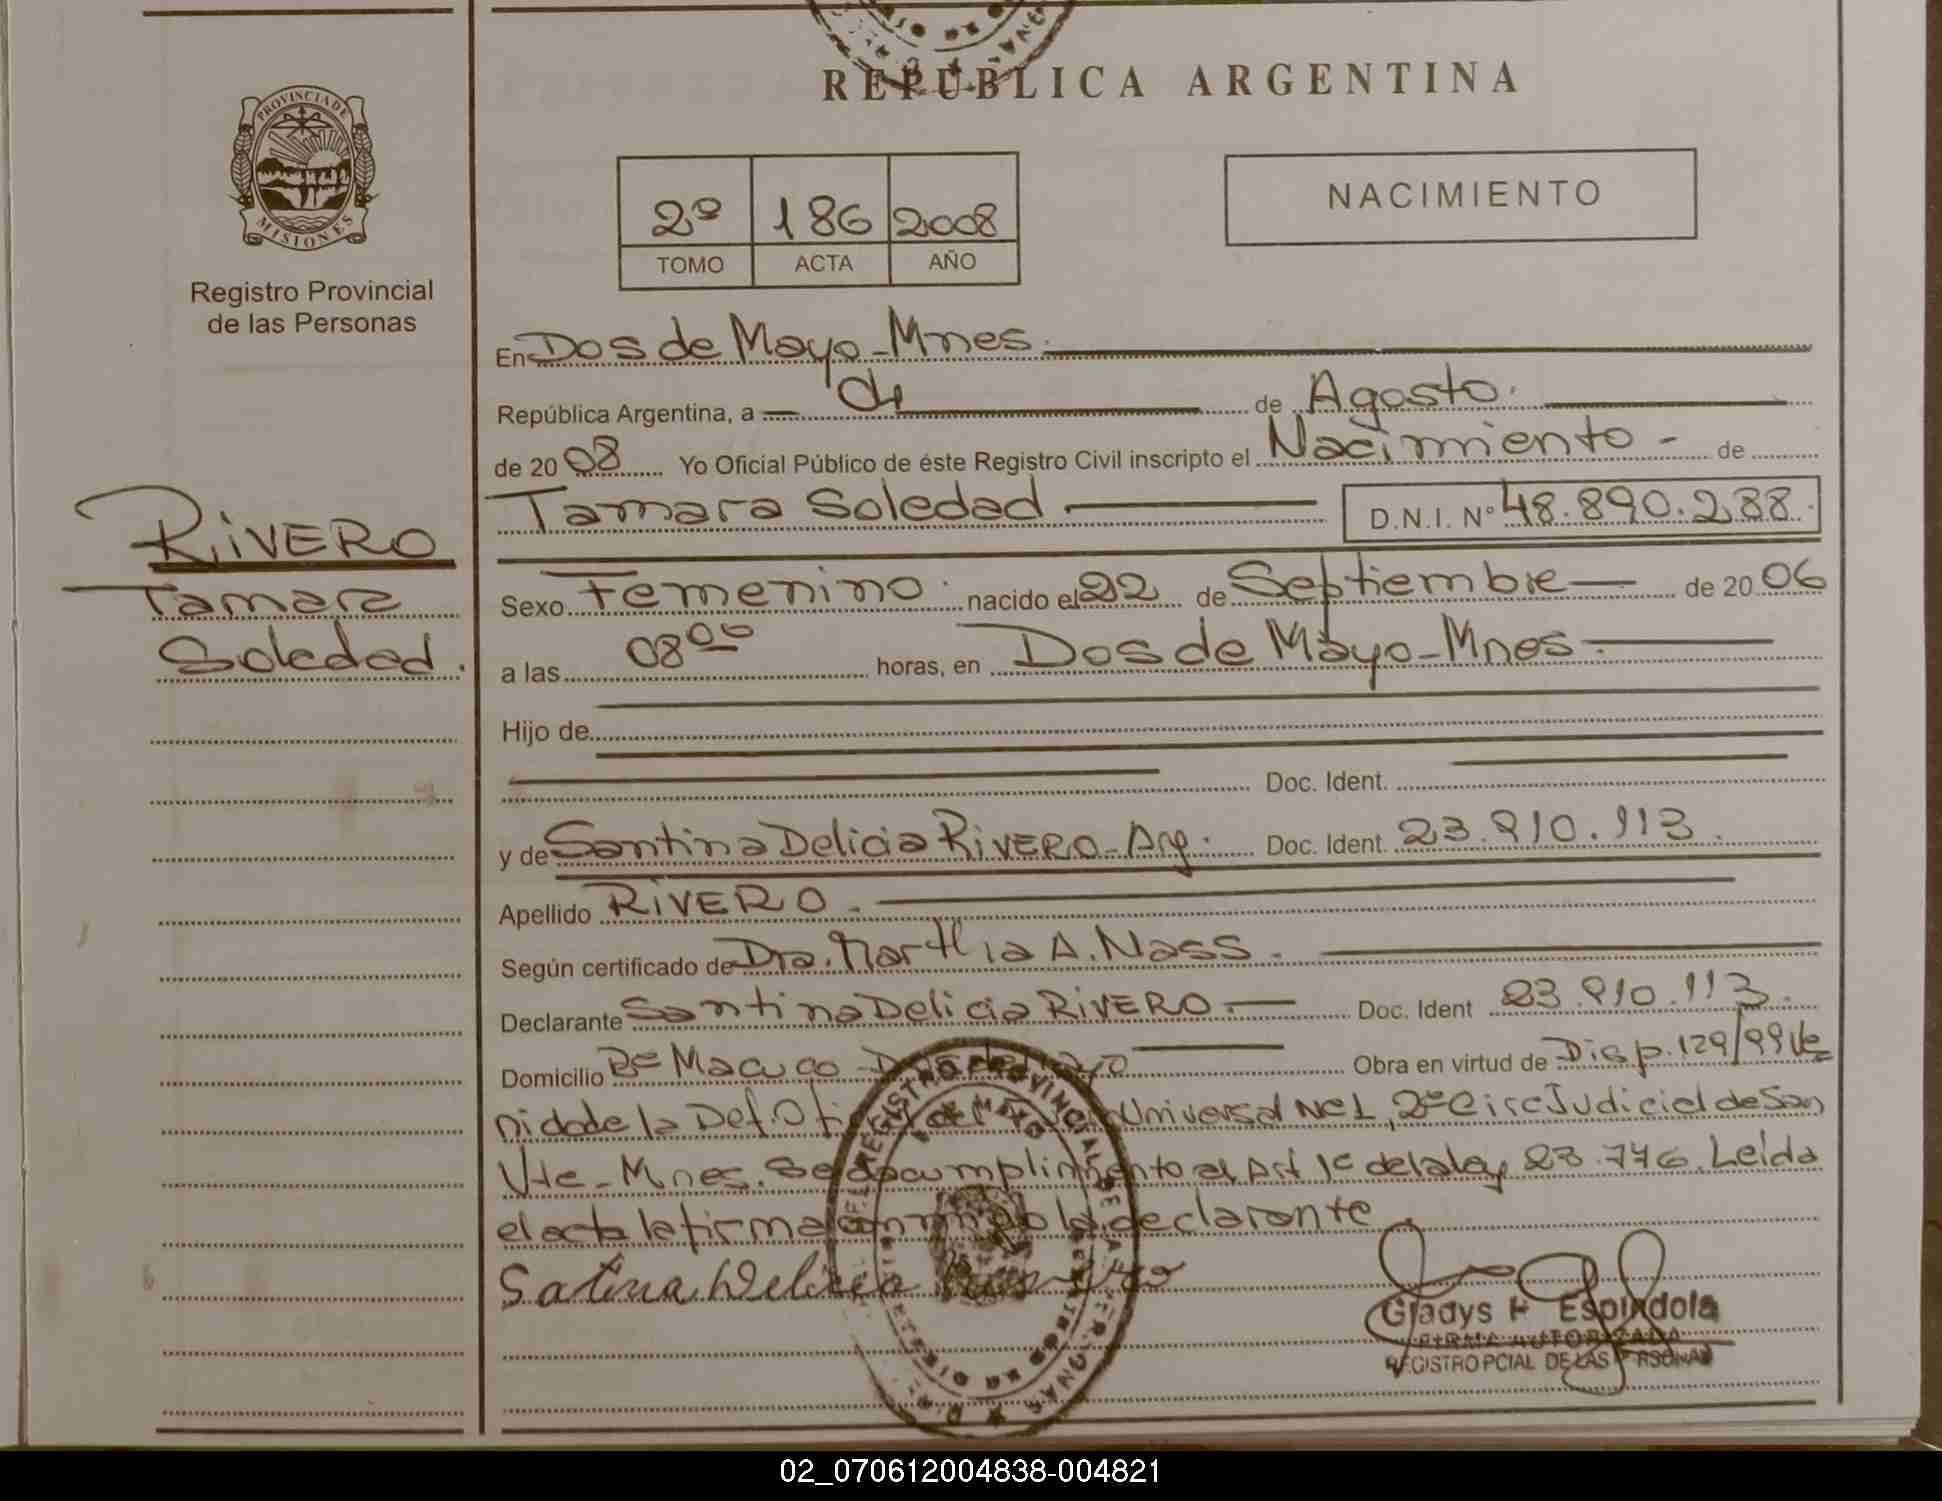 REPUBLICA ARGENTINA
PROVINCIA DE
MISIONES
Registro Provincial
de las Personas
2º 186 2008
TOMO ACTA AÑO
NACIMIENTO
En Dos de Mayo - Mnes.
República Argentina, a 04 de Agosto.
de 2008 Yo Oficial Público de éste Registro Civil inscripto el Nacimiento - de
Tamara Soledad D.N.I. Nº 48.890.288.
RIVERO
Tamara
Soledad.
Sexo Femenino. nacido el 22 de Septiembre de 2006
a las 08 00 horas, en Dos de Mayo - Mnes.
Hijo de
Doc. Ident.
y de Santina Delicia RIVERO - Arg. Doc. Ident. 23.910.113.
Apellido RIVERO.
Según certificado de Dra. Martha A. Nass.
Declarante Santina Delicia RIVERO. Doc. Ident 23.910.113.
Domicilio Bº Macuco - Dos de Mayo Obra en virtud de Disp. 129/99 Ve
nida de la Def. Universal Nº 1, 2º Circ Judicial de San
Vte - Mnes. Se da cumplimiento al Art 1º de la ley 23.746. Leída
el acta la firma conmigo la declarante.
Gladys Espindola
FIRMA AUTORIZADA
REGISTRO PCIAL DE LAS PERSONAS
02_070612004838-004821